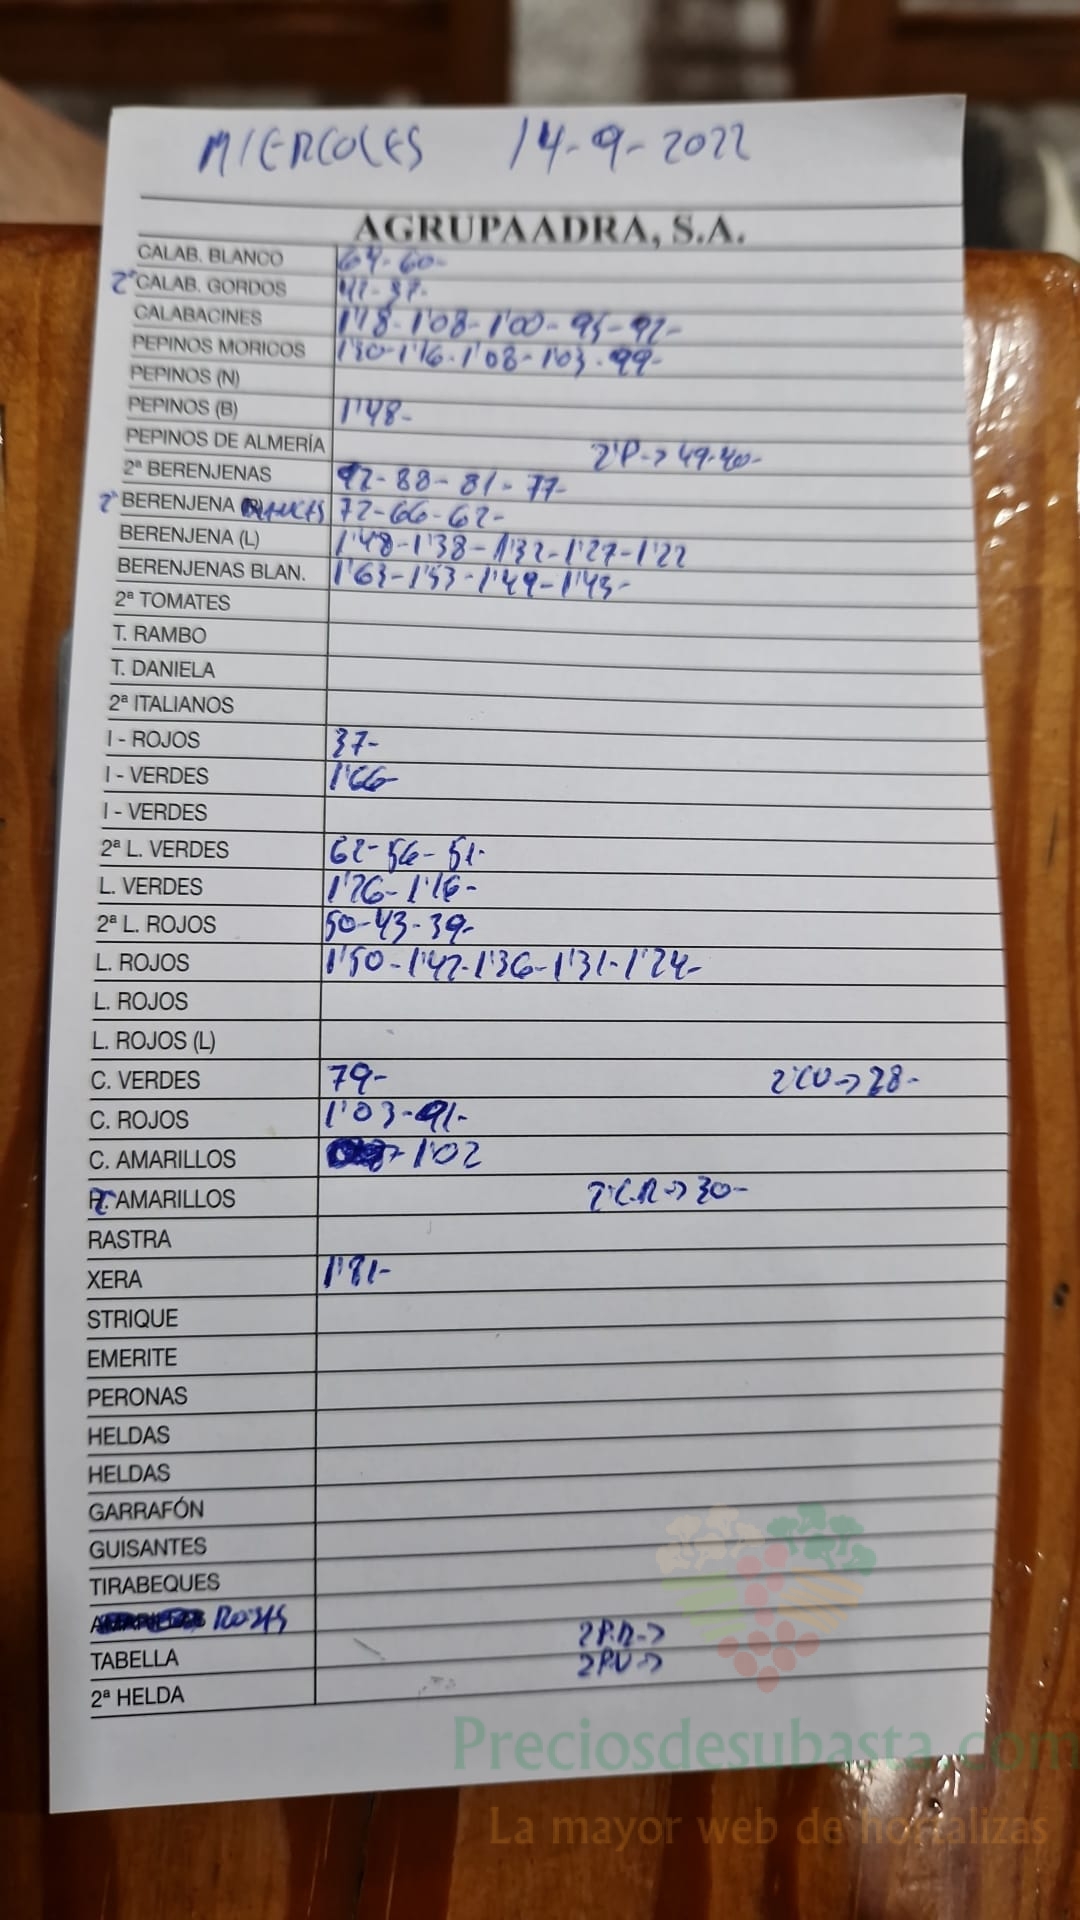 MIERCOLES 14-9-2022
AGRUPAADRA, S.A.
CALAB. BLANCO 64-60-
2ª CALAB. GORDOS 42-37-
CALABACINES 1'18-1'08-1'00-95-92-
PEPINOS MORICOS 1'30-1'16-1'08-1'03-99-
PEPINOS (N)
PEPINOS (B) 1'48-
PEPINOS DE ALMERÍA 2ªP-> 49-40-
2ª BERENJENAS 92-88-81-77-
2ª BERENJENA 72-66-62-
BERENJENA (L) 1'48-1'38-1'32-1'27-1'22
BERENJENAS BLAN. 1'63-1'53-1'49-1'43-
2ª TOMATES
T. RAMBO
T. DANIELA
2ª ITALIANOS
I - ROJOS 37-
I - VERDES 1'66-
I - VERDES
2ª L. VERDES 62-56-51-
L. VERDES 1'26-1'16-
2ª L. ROJOS 50-43-39-
L. ROJOS 1'50-1'42-1'36-1'31-1'24-
L. ROJOS
L. ROJOS (L)
C. VERDES 79- 2ªCV-> 28-
C. ROJOS 1'03-91-
C. AMARILLOS 1'02
AMARILLOS 2ªC.R-> 30-
RASTRA
XERA 1'81-
STRIQUE
EMERITE
PERONAS
HELDAS
HELDAS
GARRAFÓN
GUISANTES
TIRABEQUES
ROJAS 2P.R->
TABELLA 2P.V->
2ª HELDA
Preciosdesubasta.com
La mayor web de hortalizas